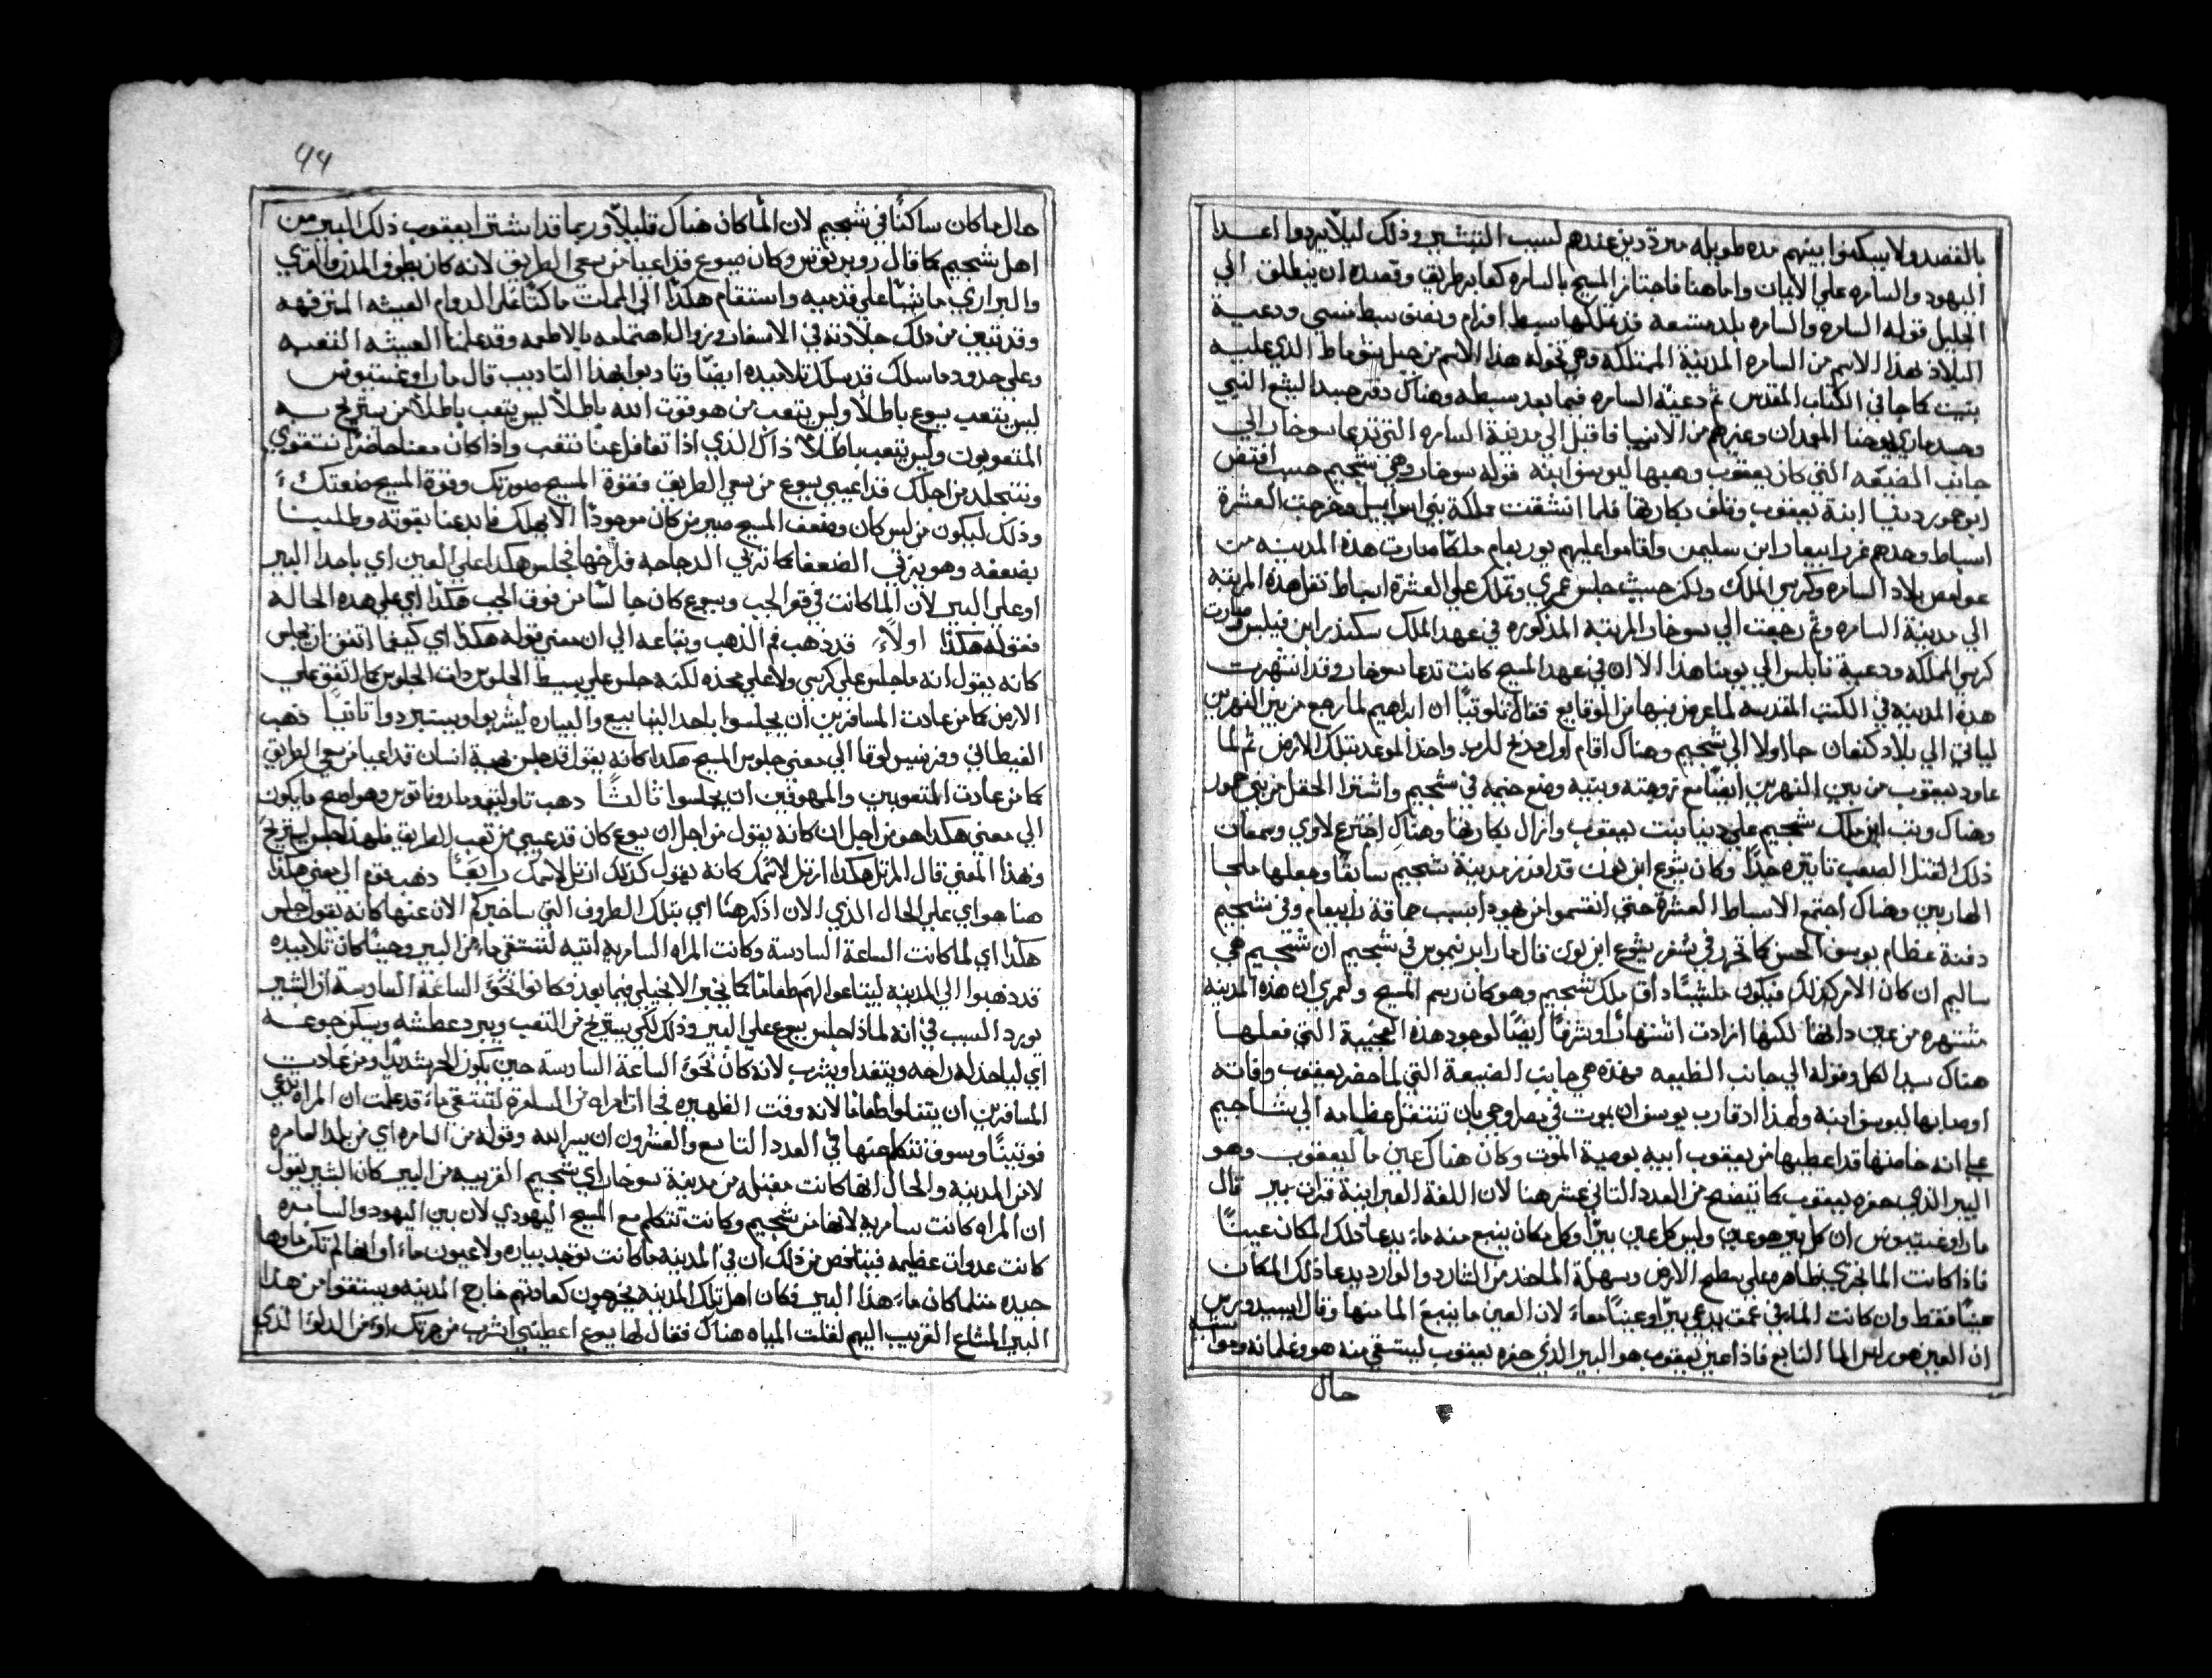 بالقصد ولا يسكنوا بينهم مده طويله مترددين عندهم لسبب التبشير وذلك ليلا يردوا اعدا
اليهود والسامره علي الايمان واما هنا فاجتاز المسيح بالسامره كعابر طريق وقصده ان ينطلق الي
الجليل قوله السامره والسامره بلد متسعه قد تملكها سبط افرام ونصف سبط منسي ودعية
البلاد بهذا الاسم من السامره المدينة الممتلكة وهي تخوله هذا الاسم من جبل شوماط الذي عليه
بنيت كما جا في الكتاب المقدس ثم دعية السامره فيما بعد سبطه وهناك دفن جسد اليشع النبي
وجسد ماري يوحنا المعمدان وغيرهم من الانبيا فاقبل الي مدينة السامره التي تدعا سوخار الي
جانب الضيعه التي كان يعقوب وهبها ليوسف ابنه قوله سوخار وهي شجيم حيث افتض
ابو حمور دينا ابنة يعقوب وتلف بكارتها فلما انشقت مملكة بني اسراييل وخرجت العشرة
اسباط وحدهم عن رابيعام ابن سليمن واقاموا عليهم يوربعام ملكا صارت هذه المدينه من
عواصم بلاد السامره وكرسي الملك ولكن حيث جلس عمري وتملك علي العشرة اسباط نقل هذه المرتبه
الي مدينة السامره وثم رجعت الي سوخار المرتبه المذكوره في عهد الملك سكندر ابن فيلبس وصارت
كرسي المملكه ودعية نابلس الي يومنا هذا الا ان في عهد المسيح كانت تدعا سوخار وقد انشهرت
هذه المدينه في الكتب المقدسه لما عرض فيها من الوقايع فقال تلوتيا ان ابراهيم لما رجع من بين النهرين
لياتي الي بلاد كنعان جا اولا الي شجيم وهناك اقام اول مذبح للرب واخذ الموعد بتلك الارض ثم لما
عاود يعقوب من بين النهرين ايضا مع زوجته وبنيه وضع خيمه في شجيم واشترا الحقل من بني حمور
وهناك وثب ابن ملك شجيم علي دينا بنت يعقوب وازال بكارتها وهناك اخترع لاوي وسمعان
ذلك القتل الصعب تاثيره جدا وكان يشوع ابن نون قد افرز مدينة شجيم سابقا وجعلها ملجا
الهاربين وهناك اجتمع الاسباط العشره حتي انقسموا من يهودا بسبب حماقة رابيعام وفي شجيم
دفنة عظام يوسف الحسن كما تحرر في سفر يشوع ابن نون قال مار ابرنيموس في شجيم ان شجيم هي
ساليم ان كان الامر كذلك فيكون ملشيساداق ملك شجيم وهو كان رسم المسيح ولعمري ان هذه المدينه
مشتهره من عين ذاتها لكنها ازدادت اشتهارا وشرفا ايضا لوجود هذه العجيبة التي فعلها
هناك سيد الكل وقوله الي جانب الضيعه فهذه هي جانب الضيعة التي لما حضر يعقوب وفاته
اوصا بها ليوسف ابنه ولهذا اذ قارب يوسف ان يموت في مصر اوصي بان تنتقل عظامه الي شاجيم
علي انه ضامنها قد اعطيها من يعقوب ابيه بوصية الموت وكان هناك عين ما ليعقوب وهو
البير الذي حفره يعقوب كما يتضح من العدد الثاني عشر هنا لان اللغة العبرانية قرات بير قال
مار اوغستينوس ان كل بير هو عين وليس كل عين بيرا وكل مكان ينبع منه ماء يدعا ذلك المكان عينا
فاذا كانت الما تجري ظاهره علي سطح الارض وسهلة الماخذ من الشارد والوارد يدعا ذلك المكان
عينا فقط وان كانت الماء في عمق يدعي بيرا وعينا معاء لان العين ما ينبع الما منها وقال ايسيدورس
ان العين هو راس الما النابع فاذا عين يعقوب هو البير الذي حفره يعقوب ليستقي منه هو وغلمانه ومواشيه
حال
44
حال ما كان ساكنا في شجيم لان الما كان هناك قليلا وربما قد اشترا يعقوب ذلك البير من
اهل شجيم كما قال روبرتوس وكان يسوع قد اعيا من سعي الطريق لانه كان يطوف المدن والقري
والبراري ماشيا علي قدميه واستقام هكذا الي الممات ماكثا علي الدوام العيشه المترفهه
وقد تبين من ذلك جلادته في الاسفار وزوال اهتمامه بالاطعمه وقد علمنا العيشه التعبه
وعلي حدود ما سلك قد سلك تلاميده ايضا وتادبوا بهذا التاديب قال مار اوغستينوس
ليس يتعب يسوع باطلا وليس يتعب من هو قوت الله باطلا ليس يتعب باطلا من يستريح به
المتعوبون وليس يتعب باطلا ذاك الذي اذا تغافل عنا نتعب واذا كان معنا حاضرا نتقوي
ونتجلد من اجلك قد اعيي يسوع من سعي الطريق فقوة المسيح صورتك وقوة المسيح ضعفك
وذلك ليكون من ليس كان وضعف المسيح صير من كان موجودا الا يهلك فابدعنا بقوته وطلبنا
بضعفه وهو يربي الضعفا كما تربي الدجاجه فراخها فجلس هكذا علي العين اي باحدا البير
او علي البير لان الما كانت في قعر الجب ويسوع كان جالسا من فوق الجب هكذا اي علي هذه الحاله
فقوله هكذا اولاء قد ذهب فم الذهب وتباعه الي ان معني قوله هكذا اي كيفما اتفق ان يجلس
كانه يقول انه ما جلس علي كرسي ولا علي مخده لكنه جلس علي بسيط الجلوس ذات الجلوس كما اتفق علي
الارض كما من عادت المسافرين ان يجلسوا باحدا الينابيع والبياره ليشربوا ويستبردوا ثانيا ذهب
الغيطاني وفرنسيس لوقا الي معني جلوس المسيح هكذا كانه يقول قد جلس بهية انسان قد اعيا من سعي الطريق
كما من عادت المتعوبين والمرهوقين ان يجلسوا ثالثا ذهب تاوليتو ومادوناتوس وهو اصح ما يكون
الي معني هكذا هو من اجل ان كانه يقول من اجل ان يسوع كان قد عيي من تعب الطريق فلهذا جلس يستريح
وبهذا المعني قال المرتل هكذا ارتل لاسمك كانه يقول كذلك ارتل لاسمك رابعا ذهب قوم الي معني هكذا
هنا هو اي علي الحال الذي الان اذكر هنا اي بتلك الظروف التي ساخبركم الان عنها كانه يقول جلس
هكذا اي لما كانت الساعة السادسة وكانت المراه السامرية اتيه لتستقي ماء من البير وحينا كان تلاميذه
قد ذهبوا الي المدينه ليبتاعوا لهم طعاما كما يخبر الانجيلي فيما بعد وكانوا نحو الساعة السادسة ان البشير
يورد السبب في انه لماذا جلس يسوع علي العين وذلك لكي يستريح من التعب ويبرد عطشه ويسكن جوعه
اي لياخذ له راحه ويتغدا ويشرب لانه كان نحو الساعة السادسة حين يكون الحر شديدا ومن عادت
المسافرين ان يتناولوا طعاما لانه وقت الظهيره فجات امراه من السامرة لتستقي ماء قد علمت ان المراه تدعي
فوتينا وسوف نتكلم عنها في العدد التاسع والعشرون ان يسر الله وقوله من السامره اي من بلد السامره
لا من المدينه والحال انها كانت مقبله من مدينة سوخار اي شجيم القريبه من البير كان البشير يقول
ان المراه كانت سامرية لانها من شجيم وكانت تتكلم مع المسيح اليهودي لان بين اليهود والسامره
كانت عدوات عظيمه فيتلخص من ذلك ان في المدينه ما كانت توجد بياره ولا عيون ماء او انها لم تكن ماوها
جيده مثلما كان ماء هذا البير فكان اهل تلك المدينه يخرجون كعادتهم خارج المدينه ويستقوا من هذا
البير المشاع القريب اليهم لقلت المياه هناك فقال لها يسوع اعطيني اشرب من جرتك او من الدلو الذي